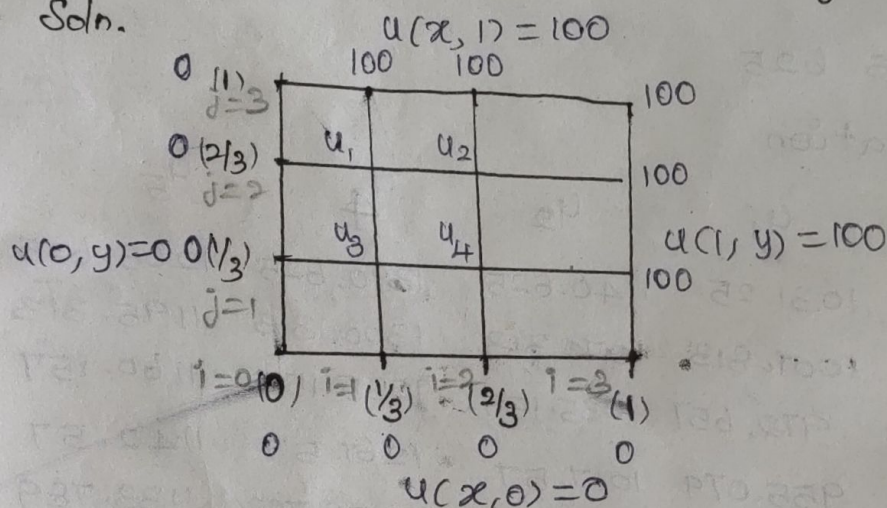 Soln.
u(x, 1) = 100
100 100
0 (1) 100
j=3
0 (2/3) u₁ u₂ 100
j=2
u(0, y)=0 0(1/3) u₃ u₄ u(1, y) = 100
100
j=1
i=0(0) i=1(1/3) i=2(2/3) i=3(1)
0 0 0 0
u(x,0)=0